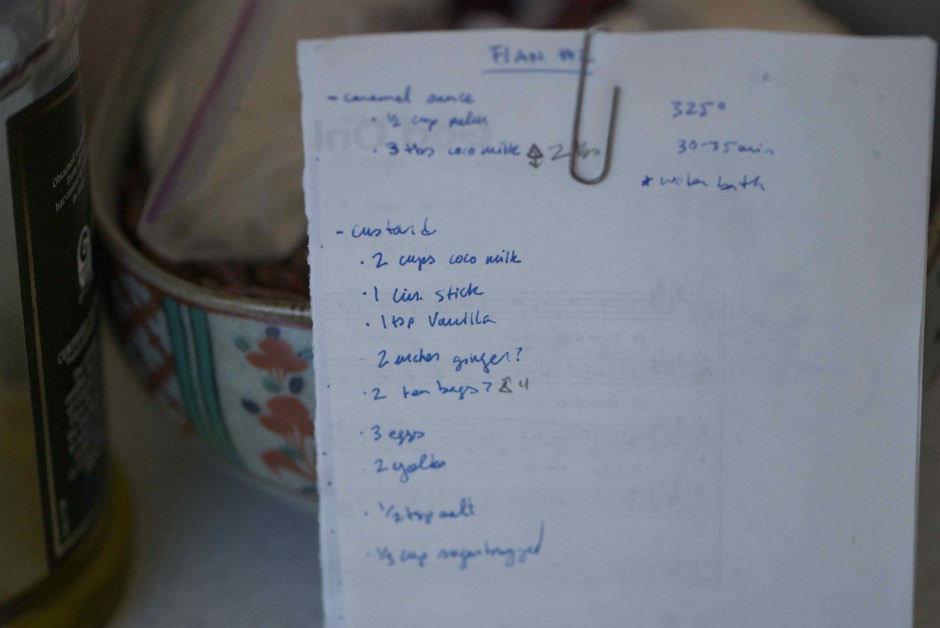 FLAN #2
- caramel sauce
· ½ cup
· 3 tbs coco milk 2 tbs
325°
30-35 min
* water bath
- custard
· 2 cups coco milk
· 1 cin. stick
· 1 tsp Vanilla
· 2 inches ginger?
· 2 tea bags? 4
· 3 eggs
2 yolks
· ½ tsp salt
· ⅓ cup sugar